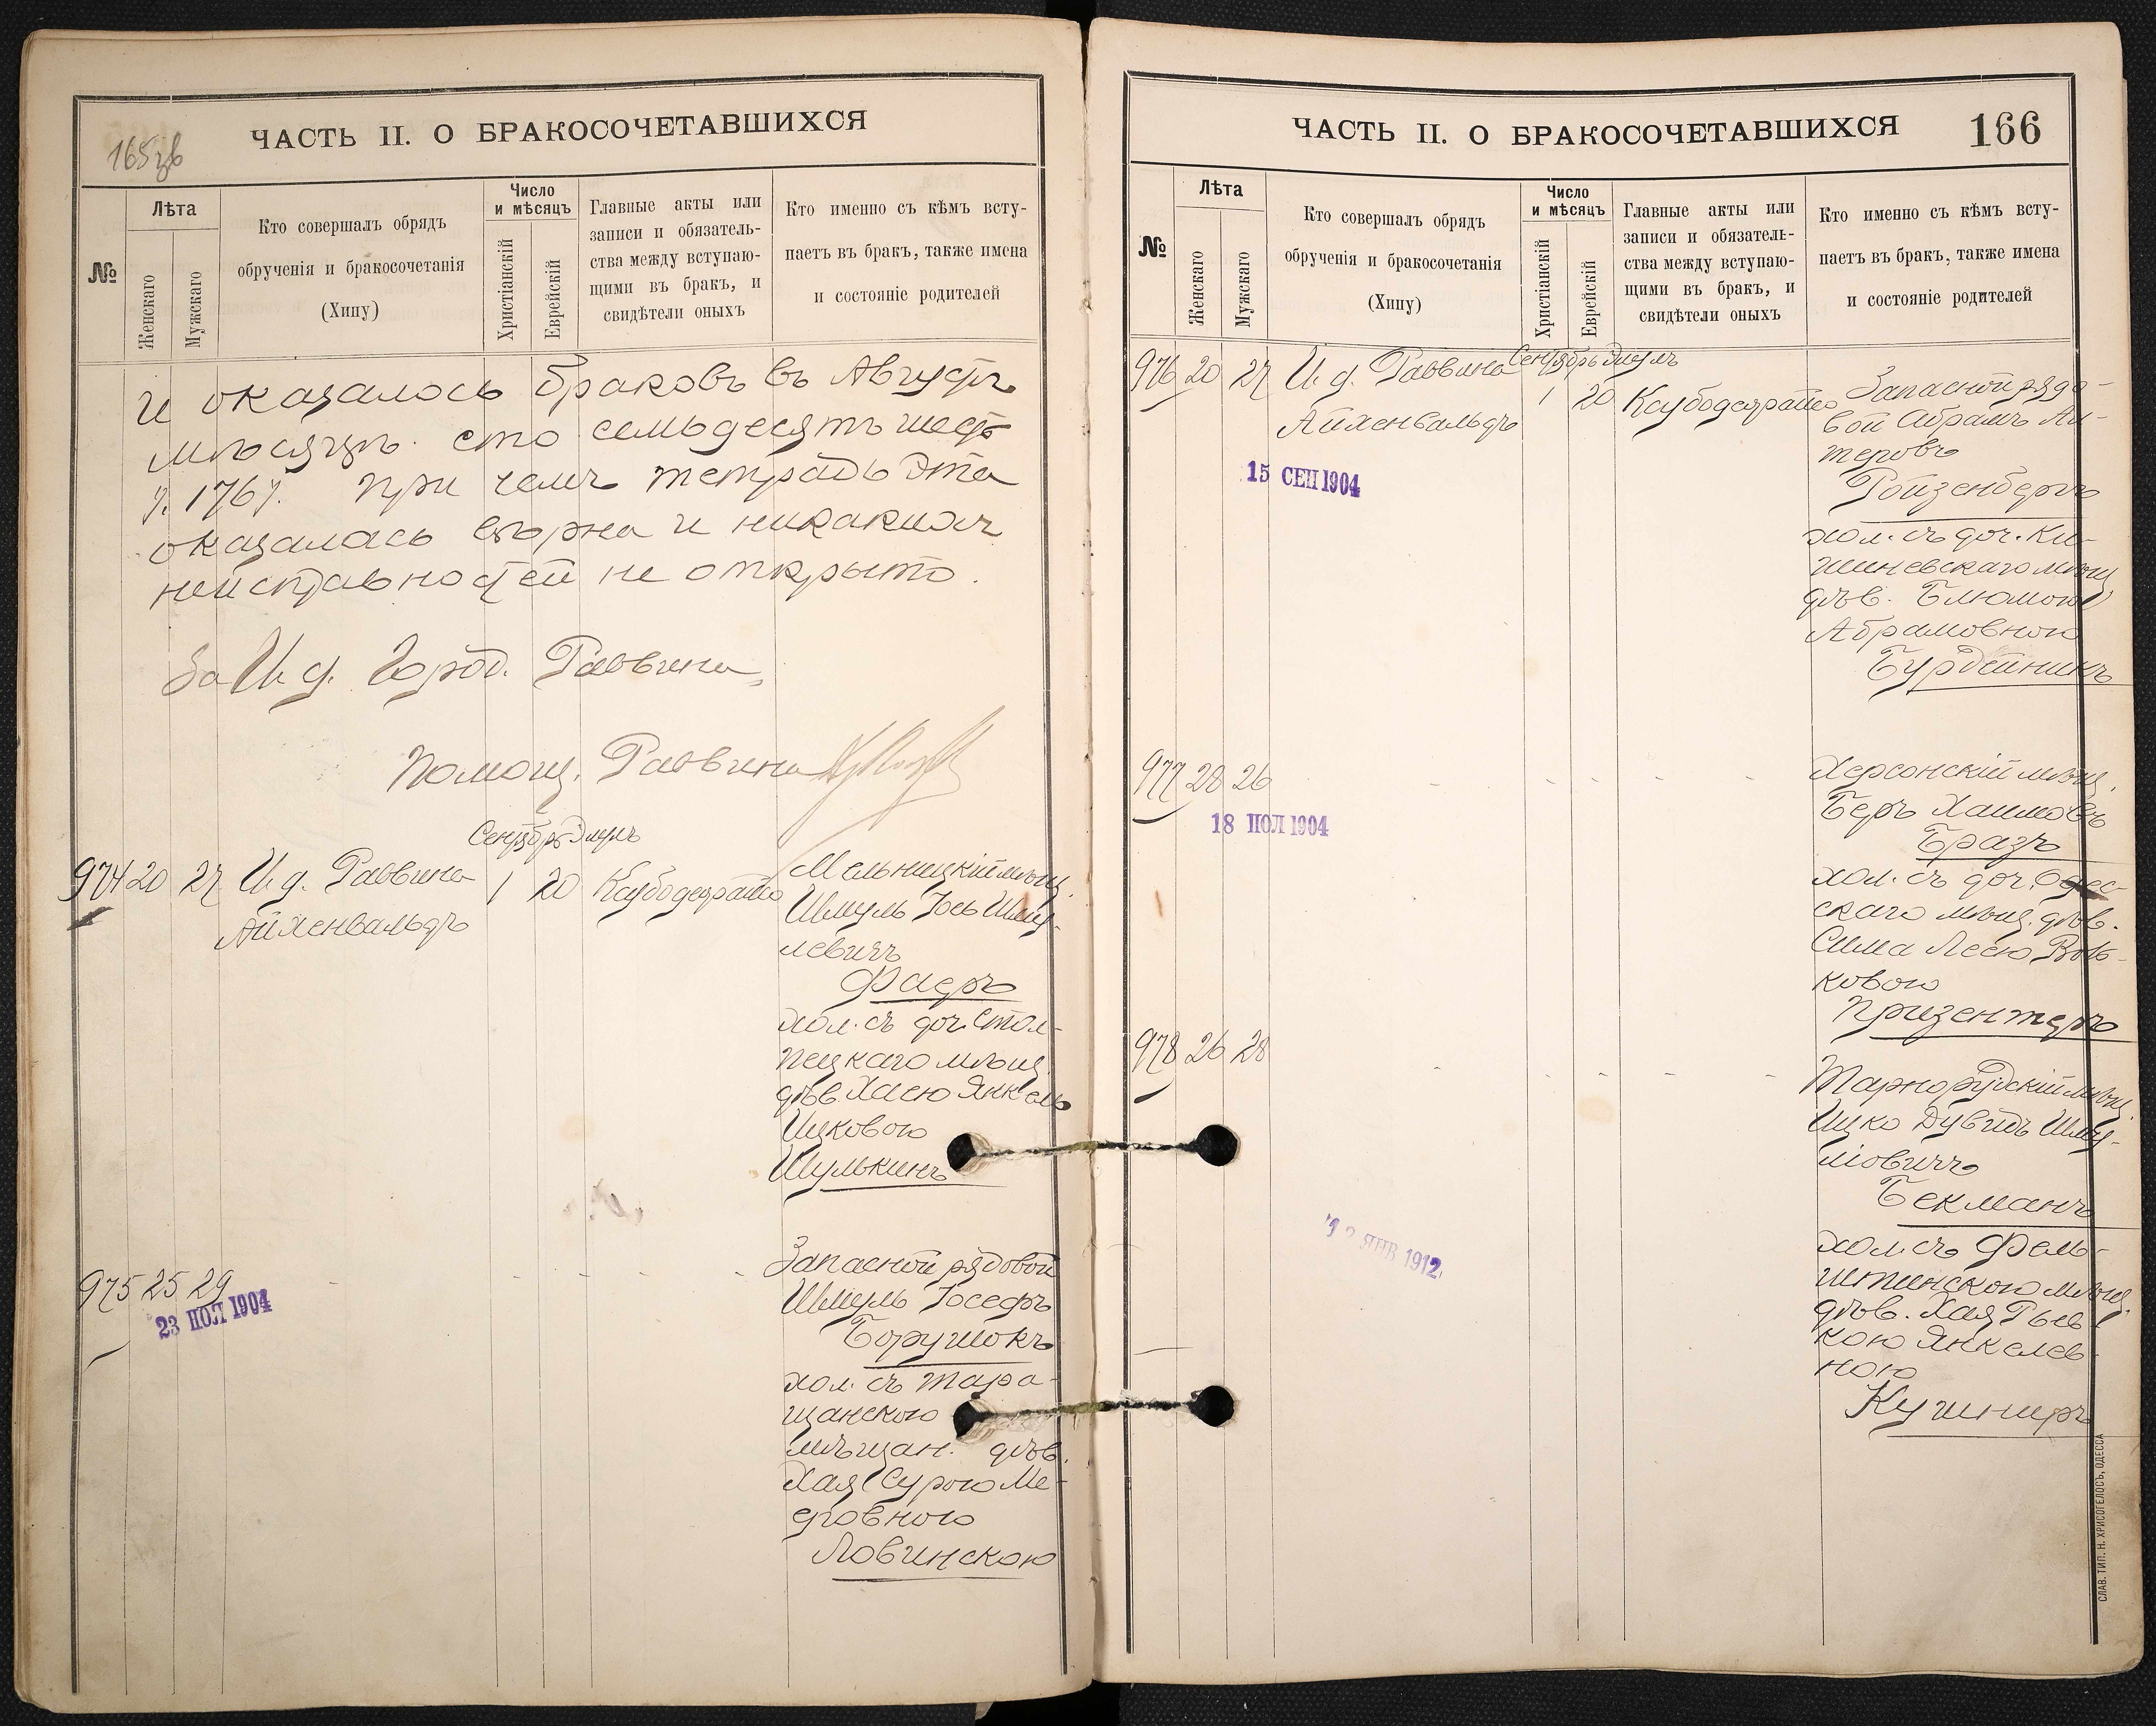 ЧАСТЬ II. О БРАКОСОЧЕТАВШИХСЯ
№
Лѣта
Женскаго
Мужскаго
Кто совершалъ обрядъ
обрученія и бракосочетанія
(Хипу)
Число
и мѣсяцъ
Христіанскій
Еврейскій
Главные акты или
записи и обязатель-
ства между вступаю-
щими въ бракъ, и
свидѣтели оныхъ
Кто именно съ кѣмъ всту-
паетъ въ бракъ, также имена
и состояніе родителей
И оказалось браковъ въ Августѣ
мѣсяцѣ сто семьдесятъ шесть
/. 176/. При чемъ тетрадь эта
оказалась вѣрна и никакихъ
неисправностей не открыто.
За И. д. Город. Раввина,
Помощ. Раввина
Сентябрь Элулъ
974 20 27 И. д. Раввина 1 20 Каубодезрайто
Айхенвальдъ
Мельницкій мѣщ.
Шмуль Іось Шму-
левичъ
Фаеръ
хол. съ доч. Стол-
пецкаго мѣщ.
дѣв. Хаею Янкель
Ицковою
Шулькинъ
975 25 29 - - - - -
23 НОЯ 1904
Запасной рядовой
Шмуль Іосефъ
Борушокъ
хол. съ Тара-
щанскою
мѣщан. дѣв.
Хая Сурою Ме-
еровною
Ловинскою
ЧАСТЬ II. О БРАКОСОЧЕТАВШИХСЯ
166
№
Лѣта
Женскаго
Мужскаго
Кто совершалъ обрядъ
обрученія и бракосочетанія
(Хипу)
Число
и мѣсяцъ
Христіанскій
Еврейскій
Главные акты или
записи и обязатель-
ства между вступаю-
щими въ бракъ, и
свидѣтели оныхъ
Кто именно съ кѣмъ всту-
паетъ въ бракъ, также имена
и состояніе родителей
Сентябрь Элулъ
976 20 27 И. д. Раввина 1 20 Каубодезрайто
Айхенвальдъ
15 СЕН 1904
Запасной рядо-
вой Абрамъ Ал-
теровъ
Ройзенбергъ
хол. съ доч. Ки-
шиневскаго мѣщ.
дѣв. Блюмою
Абрамовною
Бурдейникъ
977 28 26 - - - - -
18 НОЯ 1904
Херсонскій мѣщ.
Беръ Хаимовъ
Бразъ
хол. съ доч. Одес-
скаго мѣщ. дѣв.
Сима Леею Воль-
ковою
Призентеръ
978 26 28 - - - - -
ЯНВ 1912
Тарнорудскій мѣщ.
Ицко Дувидъ Шму-
ліовичъ
Бекманъ
хол. съ Фель-
штинскою мѣщ.
дѣв. Хая Рыв-
кою Янкелев-
ною
Кушниръ
СЛАВ. ТИП. Н. ХРИСОГЕЛОСЪ, ОДЕССА